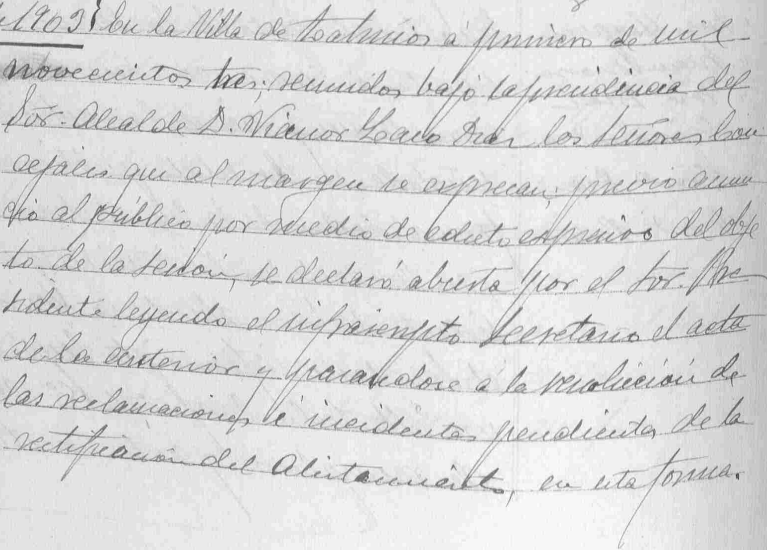 1903} En la Villa de á primero de mil
novecientos tres; reunidos bajo la presidencia del
Sor. Alcalde D. Nicanor Díaz los Señores Con
cejales que al margen se expresan; previo anun
cio al público por medio de edicto expresivo del obje
to de la sesion, se declaró abierta por el Sor. Pre
sidente leyendo el infrascripto Secretario el acta
de la anterior y pasandose á la resolución de
las reclamaciones é incidentes pendientes de la
rectificación del Alistamiento, en esta forma.